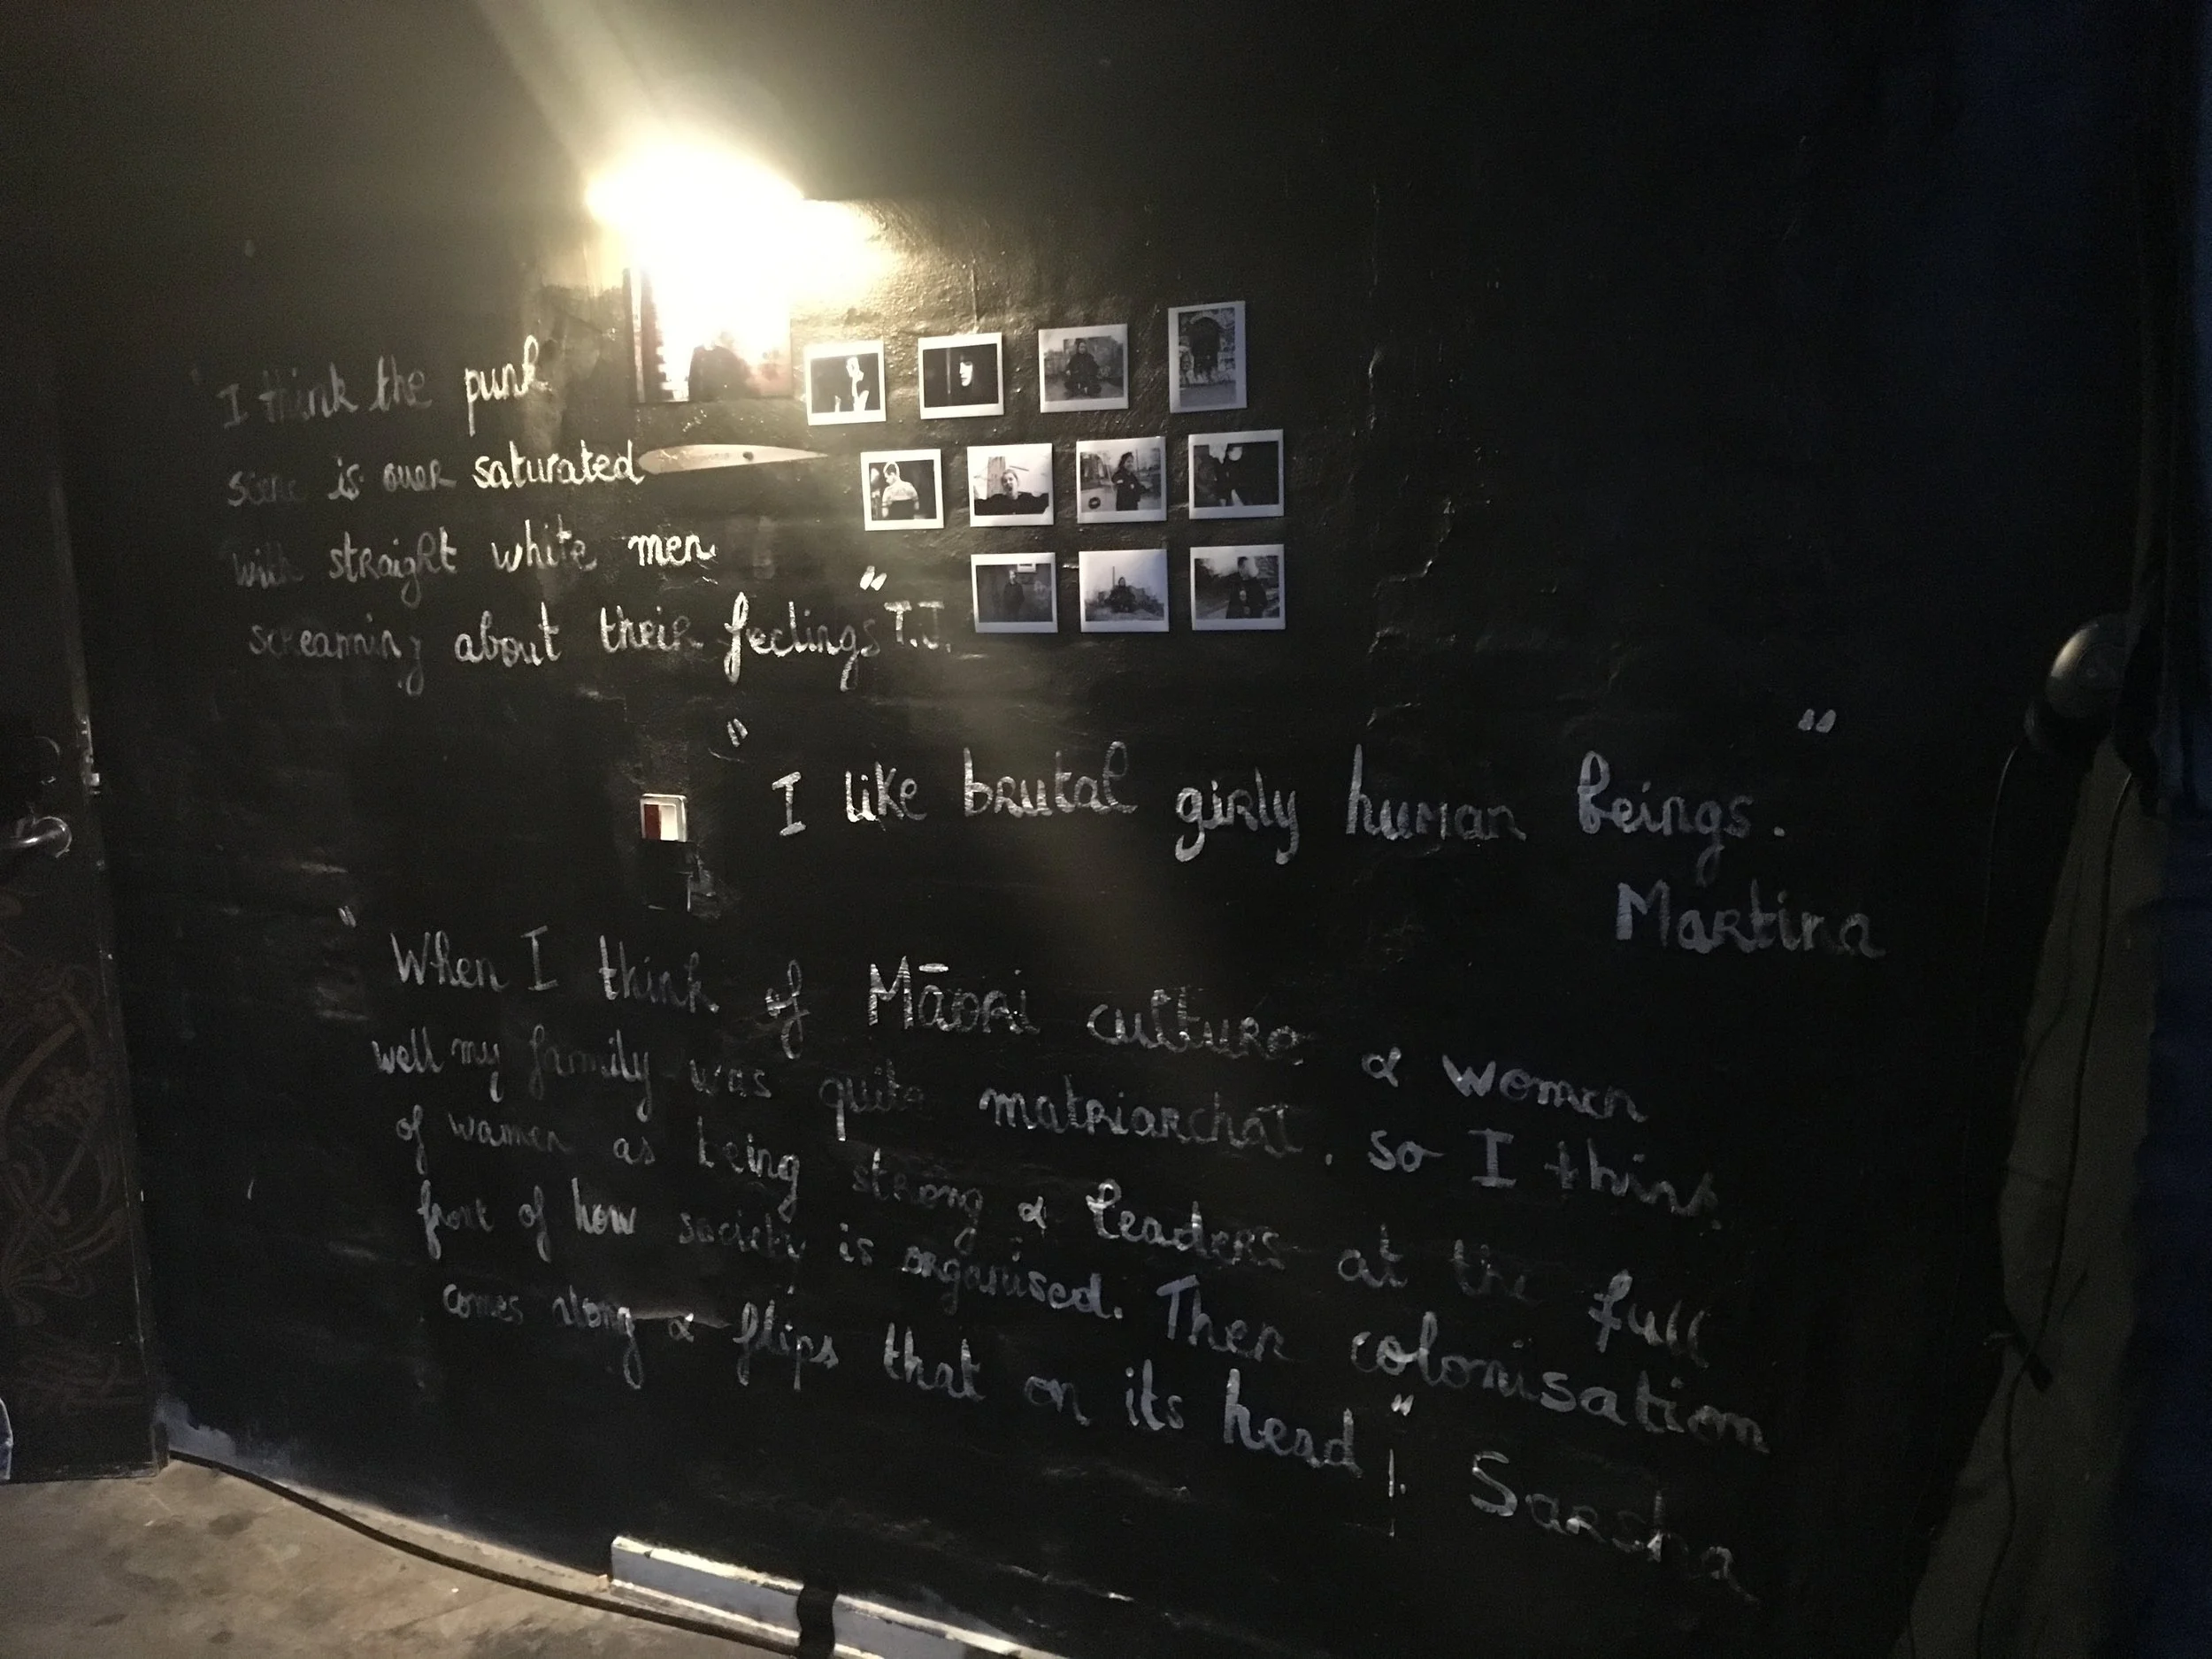 "I think the punk
scene is over saturated
with straight white men
screaming about their feelings" T.J.
"I like brutal girly human beings."
Martina
"When I think of Māori culture & women
well my family was quite matriarchal, so I think
of women as being strong & leaders at the full
front of how society is organised. Then colonisation
comes along & flips that on its head!" Sarsha